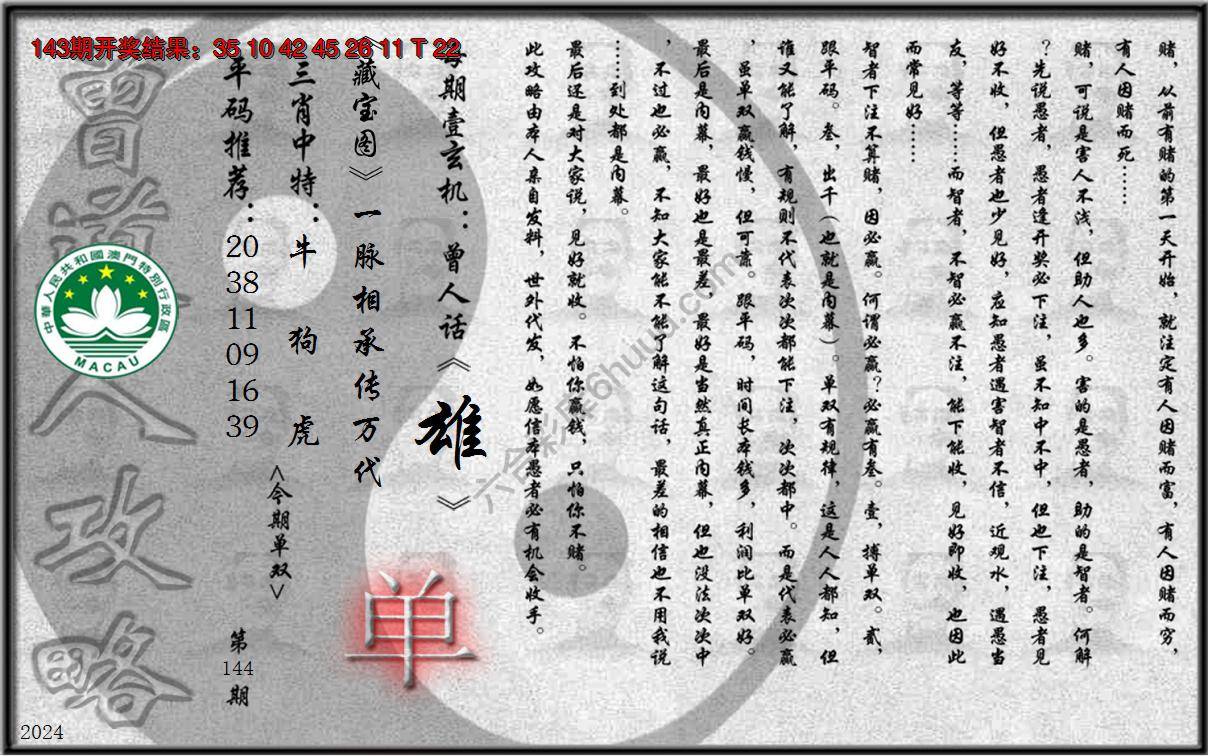 143期开奖结果：35 10 42 45 26 11 T 22
赌，从前有赌的第一天开始，就注定有人因赌而富，有人因赌而穷，
有人因赌而死……
赌，可说是害人不浅，但助人也多。害的是愚者，助的是智者。何解
？先说愚者，愚者逢开奖必下注，虽不知中不中，但也下注，愚者见
好不收，但愚者也少见好，应知愚者遇害智者不信，近观水，遇愚当
友，等等……而智者，不智必赢不注，能下能收，见好即收，也因此
而常见好……
智者下注不算赌，因必赢。何谓必赢？必赢有叁。壹，搏单双。贰，
跟平码。叁，出千（也就是内幕）。单双有规律，这是人人都知，但
谁又能了解，有规则不代表次次都能下注，次次都中。而是代表必赢
，虽单双赢钱慢，但可靠。跟平码，时间长本钱多，利润比单双好。
最后是内幕，最好也是最差，最好是当然真正内幕，但也没法次次中
，不过也必赢，不知大家能不能了解这句话，最差的相信也不用我说
……到处都是内幕。
最后还是对大家说，见好就收。不怕你赢钱，只怕你不赌。
此攻略由本人亲自发料，世外代发，如愿信本愚者必有机会收手。
每期壹玄机：曾人话《雄》
《藏宝图》一脉相承传万代
单
三肖中特：牛 狗 虎
<今期单双>
平码推荐：20 38 11 09 16 39
第144期
曾道人攻略
中華人民共和國澳門特別行政區
MACAU
六合彩库6huuu.com
2024